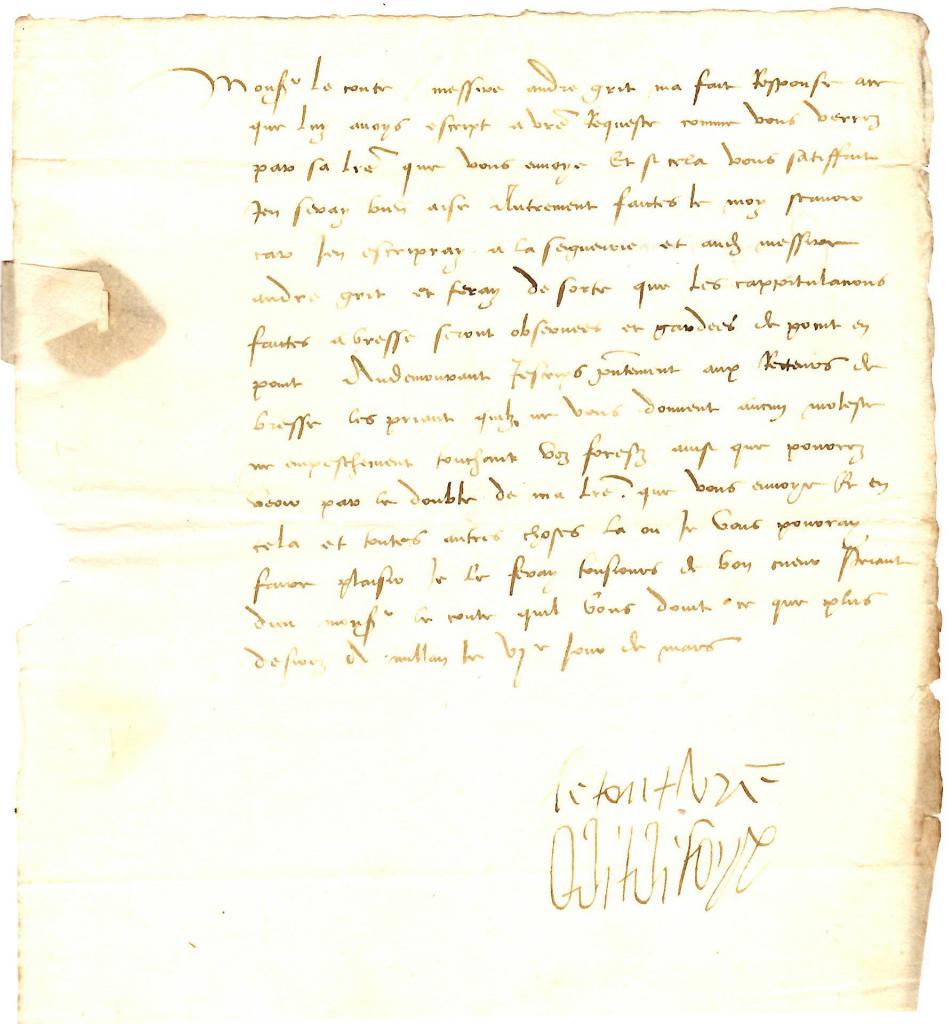 Monsr le conte messire andre grit ma fait Response a ce
que luy avoys escript a vre Requeste comme vous verrez
par sa lre que vous envoye Et si cela vous satisffait
Jen seray bien aise Autrement faites le moy scavoir
car Jen escripray a la seigneurie et aud messire
andre grit et feray de sorte que les cappitulacions
faites a bresse seront observees et gardees de point en
point Au demourant Jescrips pntement aux Recteurs de
bresse les priant quilz ne vous donnent aucun moleste
ne empeschement touchant voz forestz ainsi que pourrez
veoir par le double de ma lre que vous envoye Et en
cela et toutes autres choses la ou Je vous pourray
faire plaisir Je le feray tousiours de bon cueur Priant
dieu monsr le conte quil vous doint ce que plus
desirez A millan le vje Jour de mars
le tout vre